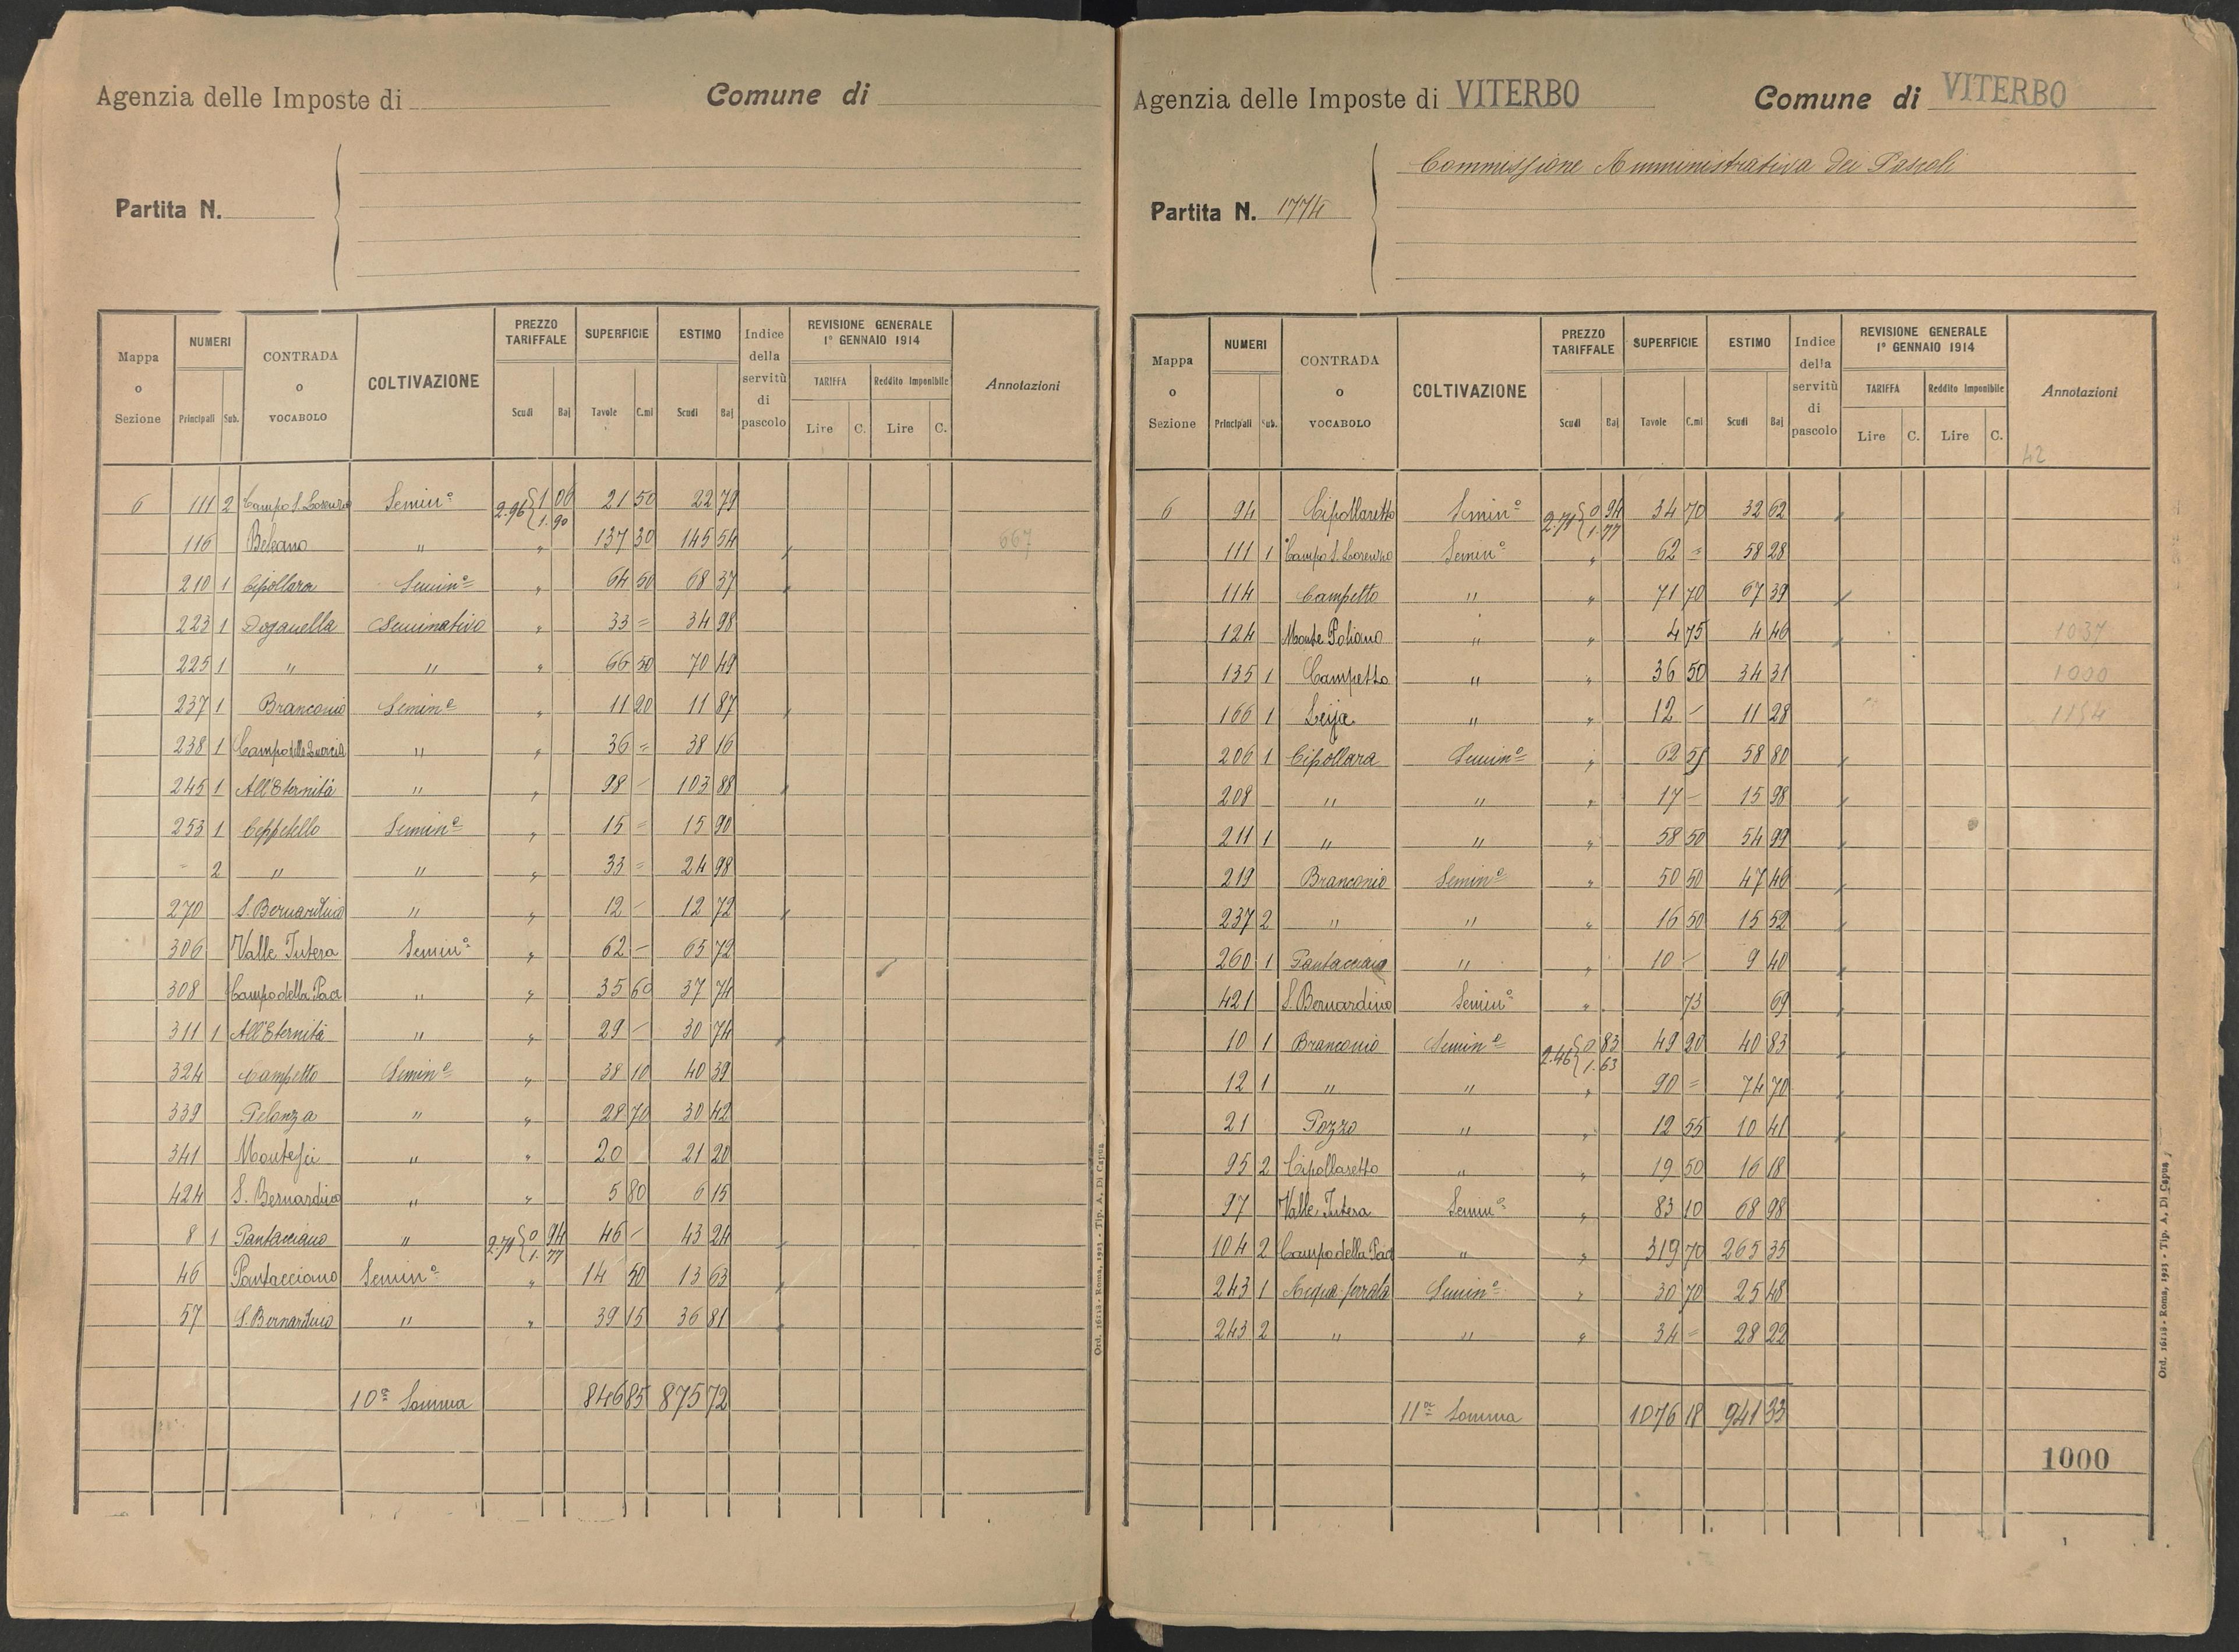 Agenzia delle Imposte di
Comune di
Partita N.
Mappa o Sezione | NUMERI Principali Sub. | CONTRADA o VOCABOLO | COLTIVAZIONE | PREZZO TARIFFALE Scudi Baj | SUPERFICIE Tavole C.mi | ESTIMO Scudi Baj | Indice della servitù di pascolo | REVISIONE GENERALE 1° GENNAIO 1914 TARIFFA Lire C. Reddito Imponibile Lire C. | Annotazioni
6 111 2 Campo S. Lorenzo Semin.o 2.96 { 1 06 1.90 21 50 22 79
116 Beleano " " 137 30 145 54 667
210 1 Cipollara Semin.o " 64 50 68 37
223 1 Doganella Seminativo " 33 = 34 98
225 1 " " " 66 50 70 49
237 1 Branconio Semin.o " 11 20 11 87
238 1 Campo della Quercia " " 36 = 38 16
245 1 All'Eternità " " 98 - 103 88
253 1 Ceppetello Semin.o " 15 = 15 90
- 2 " " " 33 = 24 98
270 S. Bernardino " " 12 - 12 72
306 Valle Jutera Semin.o " 62 - 65 72
308 Campo della Pace " " 35 60 37 74
311 1 All'Eternità " " 29 - 30 74
324 Campetto Semin.o " 38 10 40 39
339 Pelonza " " 28 70 30 42
341 " " 20 21 20
424 S. Bernardino " " 5 80 6 15
8 1 Pantacciano " 2.71 { 0 94 1.77 46 - 43 24
46 Pantacciano Semin.o " 14 50 13 63
57 S. Bernardino " " 39 15 36 81
10a Somma 846 85 875 72
Ord. 16118 - Roma, 1923 - Tip. A. Di Capua
Agenzia delle Imposte di VITERBO
Comune di VITERBO
Commissione Amministrativa dei Pascoli
Partita N. 1774
Mappa o Sezione | NUMERI Principali Sub. | CONTRADA o VOCABOLO | COLTIVAZIONE | PREZZO TARIFFALE Scudi Baj | SUPERFICIE Tavole C.mi | ESTIMO Scudi Baj | Indice della servitù di pascolo | REVISIONE GENERALE 1° GENNAIO 1914 TARIFFA Lire C. Reddito Imponibile Lire C. | Annotazioni
42
6 94 Cipollaretto Semin.o 2.71 { 0 94 1.77 34 70 32 62
111 1 Campo S. Lorenzo Semin.o " 62 = 58 28
114 Campetto " " 71 70 67 39
124 Monte Poliano " " 4 75 4 46 1037
135 1 Campetto " " 36 50 34 31 1000
166 1 Leija " " 12 - 11 28 1154
206 1 Cipollara Semin.o " 62 55 58 80
208 " " " 17 - 15 98
211 1 " " " 58 50 54 99
219 Branconio Semin.o " 50 50 47 46
237 2 " " " 16 50 15 52
260 1 Pantacciano " " 10 - 9 40
421 S. Bernardino Semin.o " 73 69
10 1 Branconio Semin.o 2.46 { 0 83 1.63 49 20 40 83
12 1 " " " 90 = 74 70
21 Pozzo " " 12 55 10 41
95 2 Cipollaretto " " 19 50 16 18
97 Valle Jutera Semin.o " 83 10 68 98
104 2 Campo della Pace " " 319 70 265 35
243 1 Acqua ferrata Semin.o " 30 70 25 48
243 2 " " " 34 = 28 22
11a Somma 1076 18 941 33
1000
Ord. 16118 - Roma, 1923 - Tip. A. Di Capua